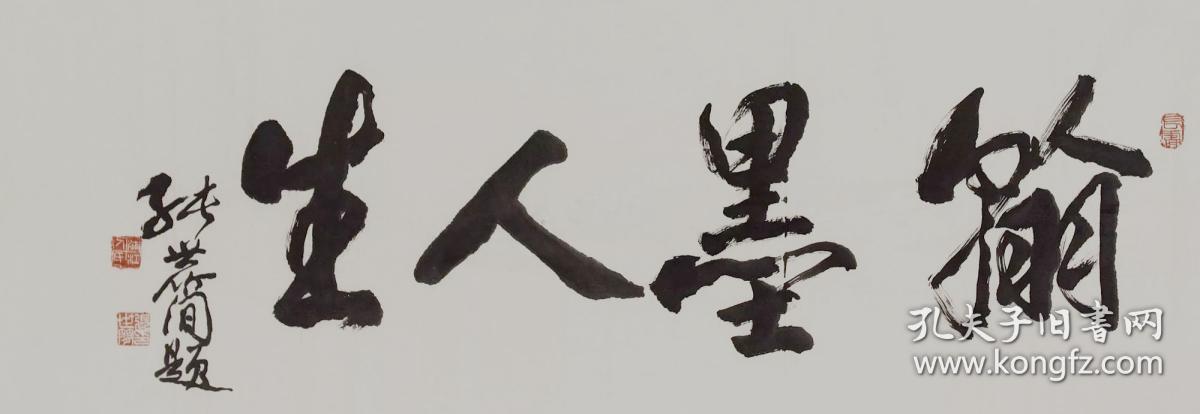 翰墨人生
张世简题
孔夫子旧书网
www.kongfz.com